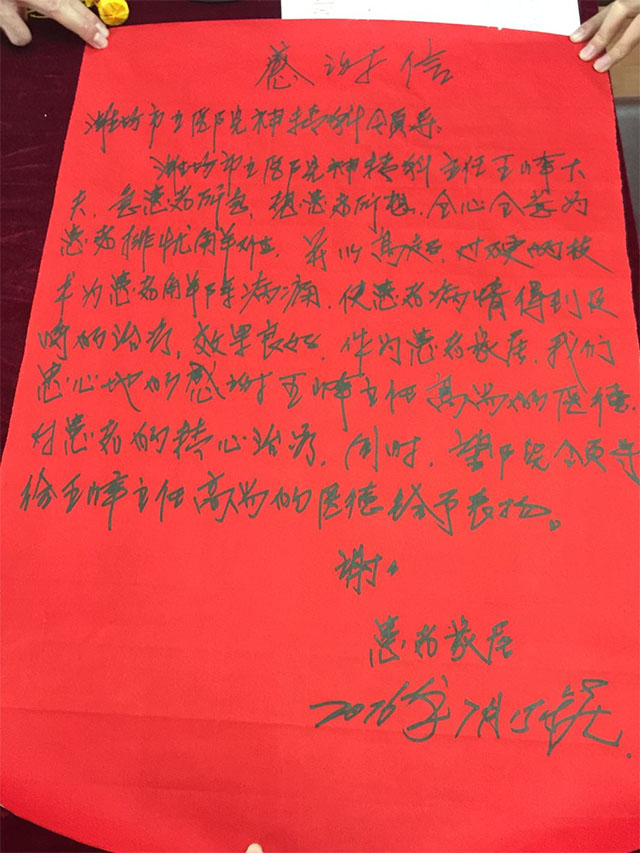 感谢信
潍坊市立医院神精科领导:
潍坊市立医院神精科主任王峰大
夫,急患者所急,想患者所想,全心全意为
患者排忧解难,并以高超、过硬的技
术为患者解除病痛,使患者病情得到及
时的治疗,效果良好,作为患者家居,我们
忠心地的感谢王峰主任高尚的医德,
对患者的精心治疗,同时,望医院领导
给王峰主任高尚的医德给予表扬。
谢谢
患者家居
2016年7月15